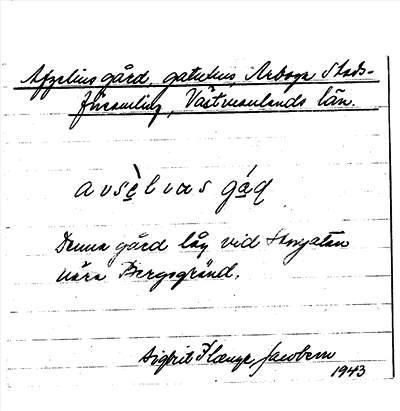 Afzelius gård, gatuhus, Arboga Stads-
församling, Västmanlands län.
avsèlvas gáq
Denna gård låg vid Storgatan
nära Bergsgränd.
Sigfrid Jacobson
1943